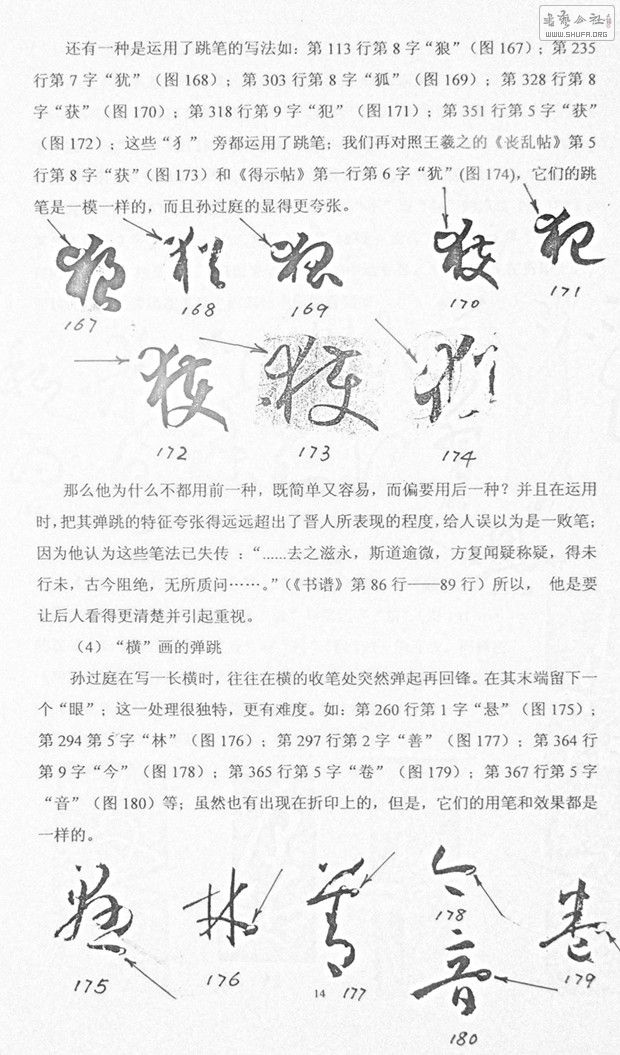 書法公社
WWW.SHUFA.ORG
还有一种是运用了跳笔的写法如：第 113 行第 8 字“狼”（图 167）；第 235
行第 7 字“犹”（图 168）；第 303 行第 8 字“狐”（图 169）；第 328 行第 8
字“获”（图 170）；第 318 行第 9 字“犯”（图 171）；第 351 行第 5 字“获”
（图 172）；这些“犭”旁都运用了跳笔；我们再对照王羲之的《丧乱帖》第 5
行第 8 字“获”（图 173）和《得示帖》第一行第 6 字“犹”(图 174)，它们的跳
笔是一模一样的，而且孙过庭的显得更夸张。
167 168 169 170 171
172 173 174
那么他为什么不都用前一种，既简单又容易，而偏要用后一种？并且在运用
时，把其弹跳的特征夸张得远远超出了晋人所表现的程度，给人误以为是一败笔；
因为他认为这些笔法已失传 ：“......去之滋永，斯道逾微，方复闻疑称疑，得末
行末，古今阻绝，无所质问……。”（《书谱》第 86 行——89 行）所以， 他是要
让后人看得更清楚并引起重视。
（4）“横”画的弹跳
孙过庭在写一长横时，往往在横的收笔处突然弹起再回锋。在其末端留下一
个“眼”；这一处理很独特，更有难度。如：第 260 行第 1 字“悬”（图 175）；
第 294 第 5 字“林”（图 176）；第 297 行第 2 字“善”（图 177）；第 364 行
第 9 字“今”（图 178）；第 365 行第 5 字“卷”（图 179）；第 367 行第 5 字
“音”（图 180）等；虽然也有出现在折印上的，但是，它们的用笔和效果都是
一样的。
狼 犹 狐 获 犯
获 获 犹
悬 林 善 今 音 卷
175 176 177 178 179
180
14